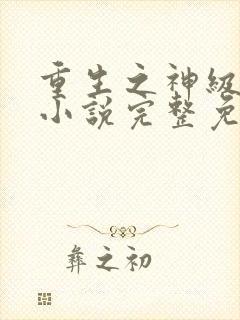 重生之神级
小说完整免
彝之初